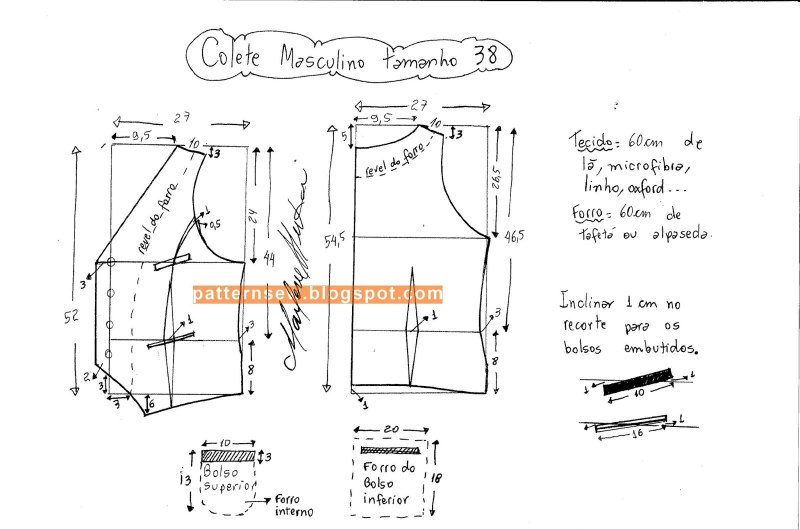 Colete Masculino tamanho 38
27
9,5
10
3
revel do forro
1
0,5
24
44
52
3
1
3
8
2
3
3
6
27
9,5
10
5
3
revel do forro
26,5
54,5
46,5
1
3
8
1
patternsew.blogspot.com
Tecido = 60cm de
lã, microfibra,
linho, oxford...
Forro = 60cm de
tafetá ou alpaseda.
Inclinar 1 cm no
recorte para os
bolsos embutidos.
1
10
1
1
16
1
10
3
13
Bolso
superior
Forro
interno
20
Forro do
Bolso
inferior
18